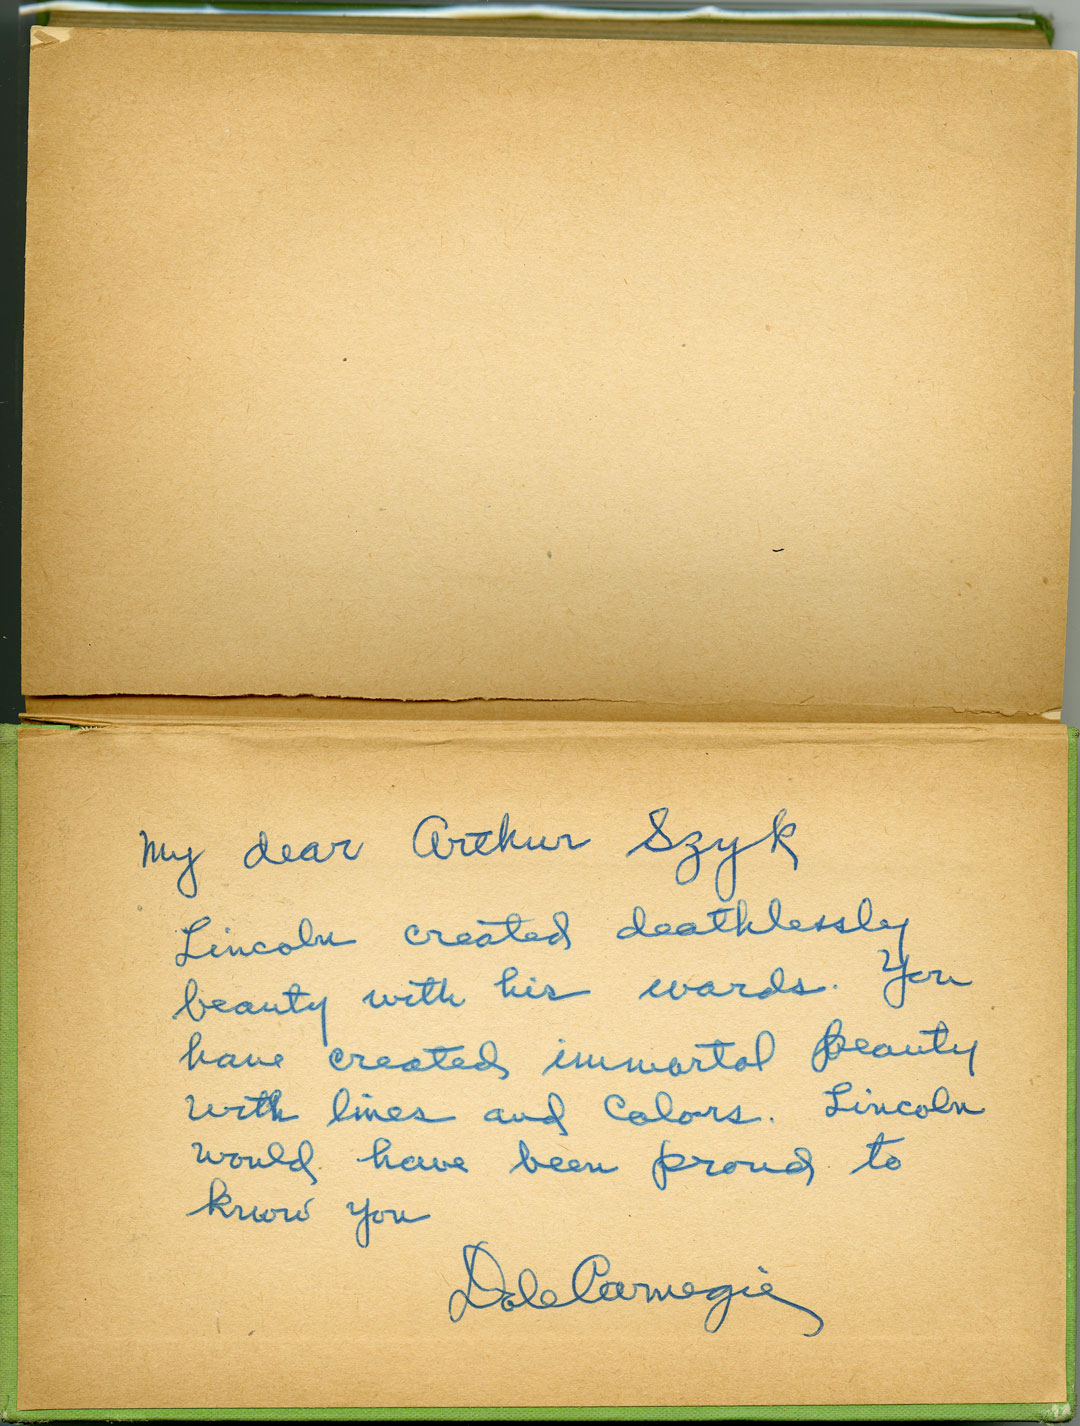 My dear Arthur Szyk
Lincoln created deathlessly
beauty with his words. You
have created immortal beauty
with lines and colors. Lincoln
would have been proud to
know you
Dale Carnegie